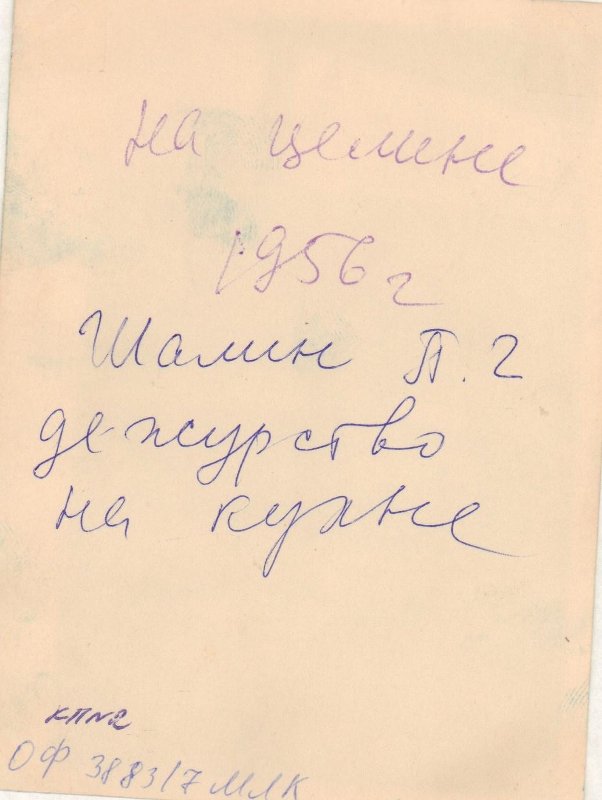 на целине
1956 г
Шалин П. Г
дежурство
на кухне
КП №2
ОФ 3883/7 МЛК